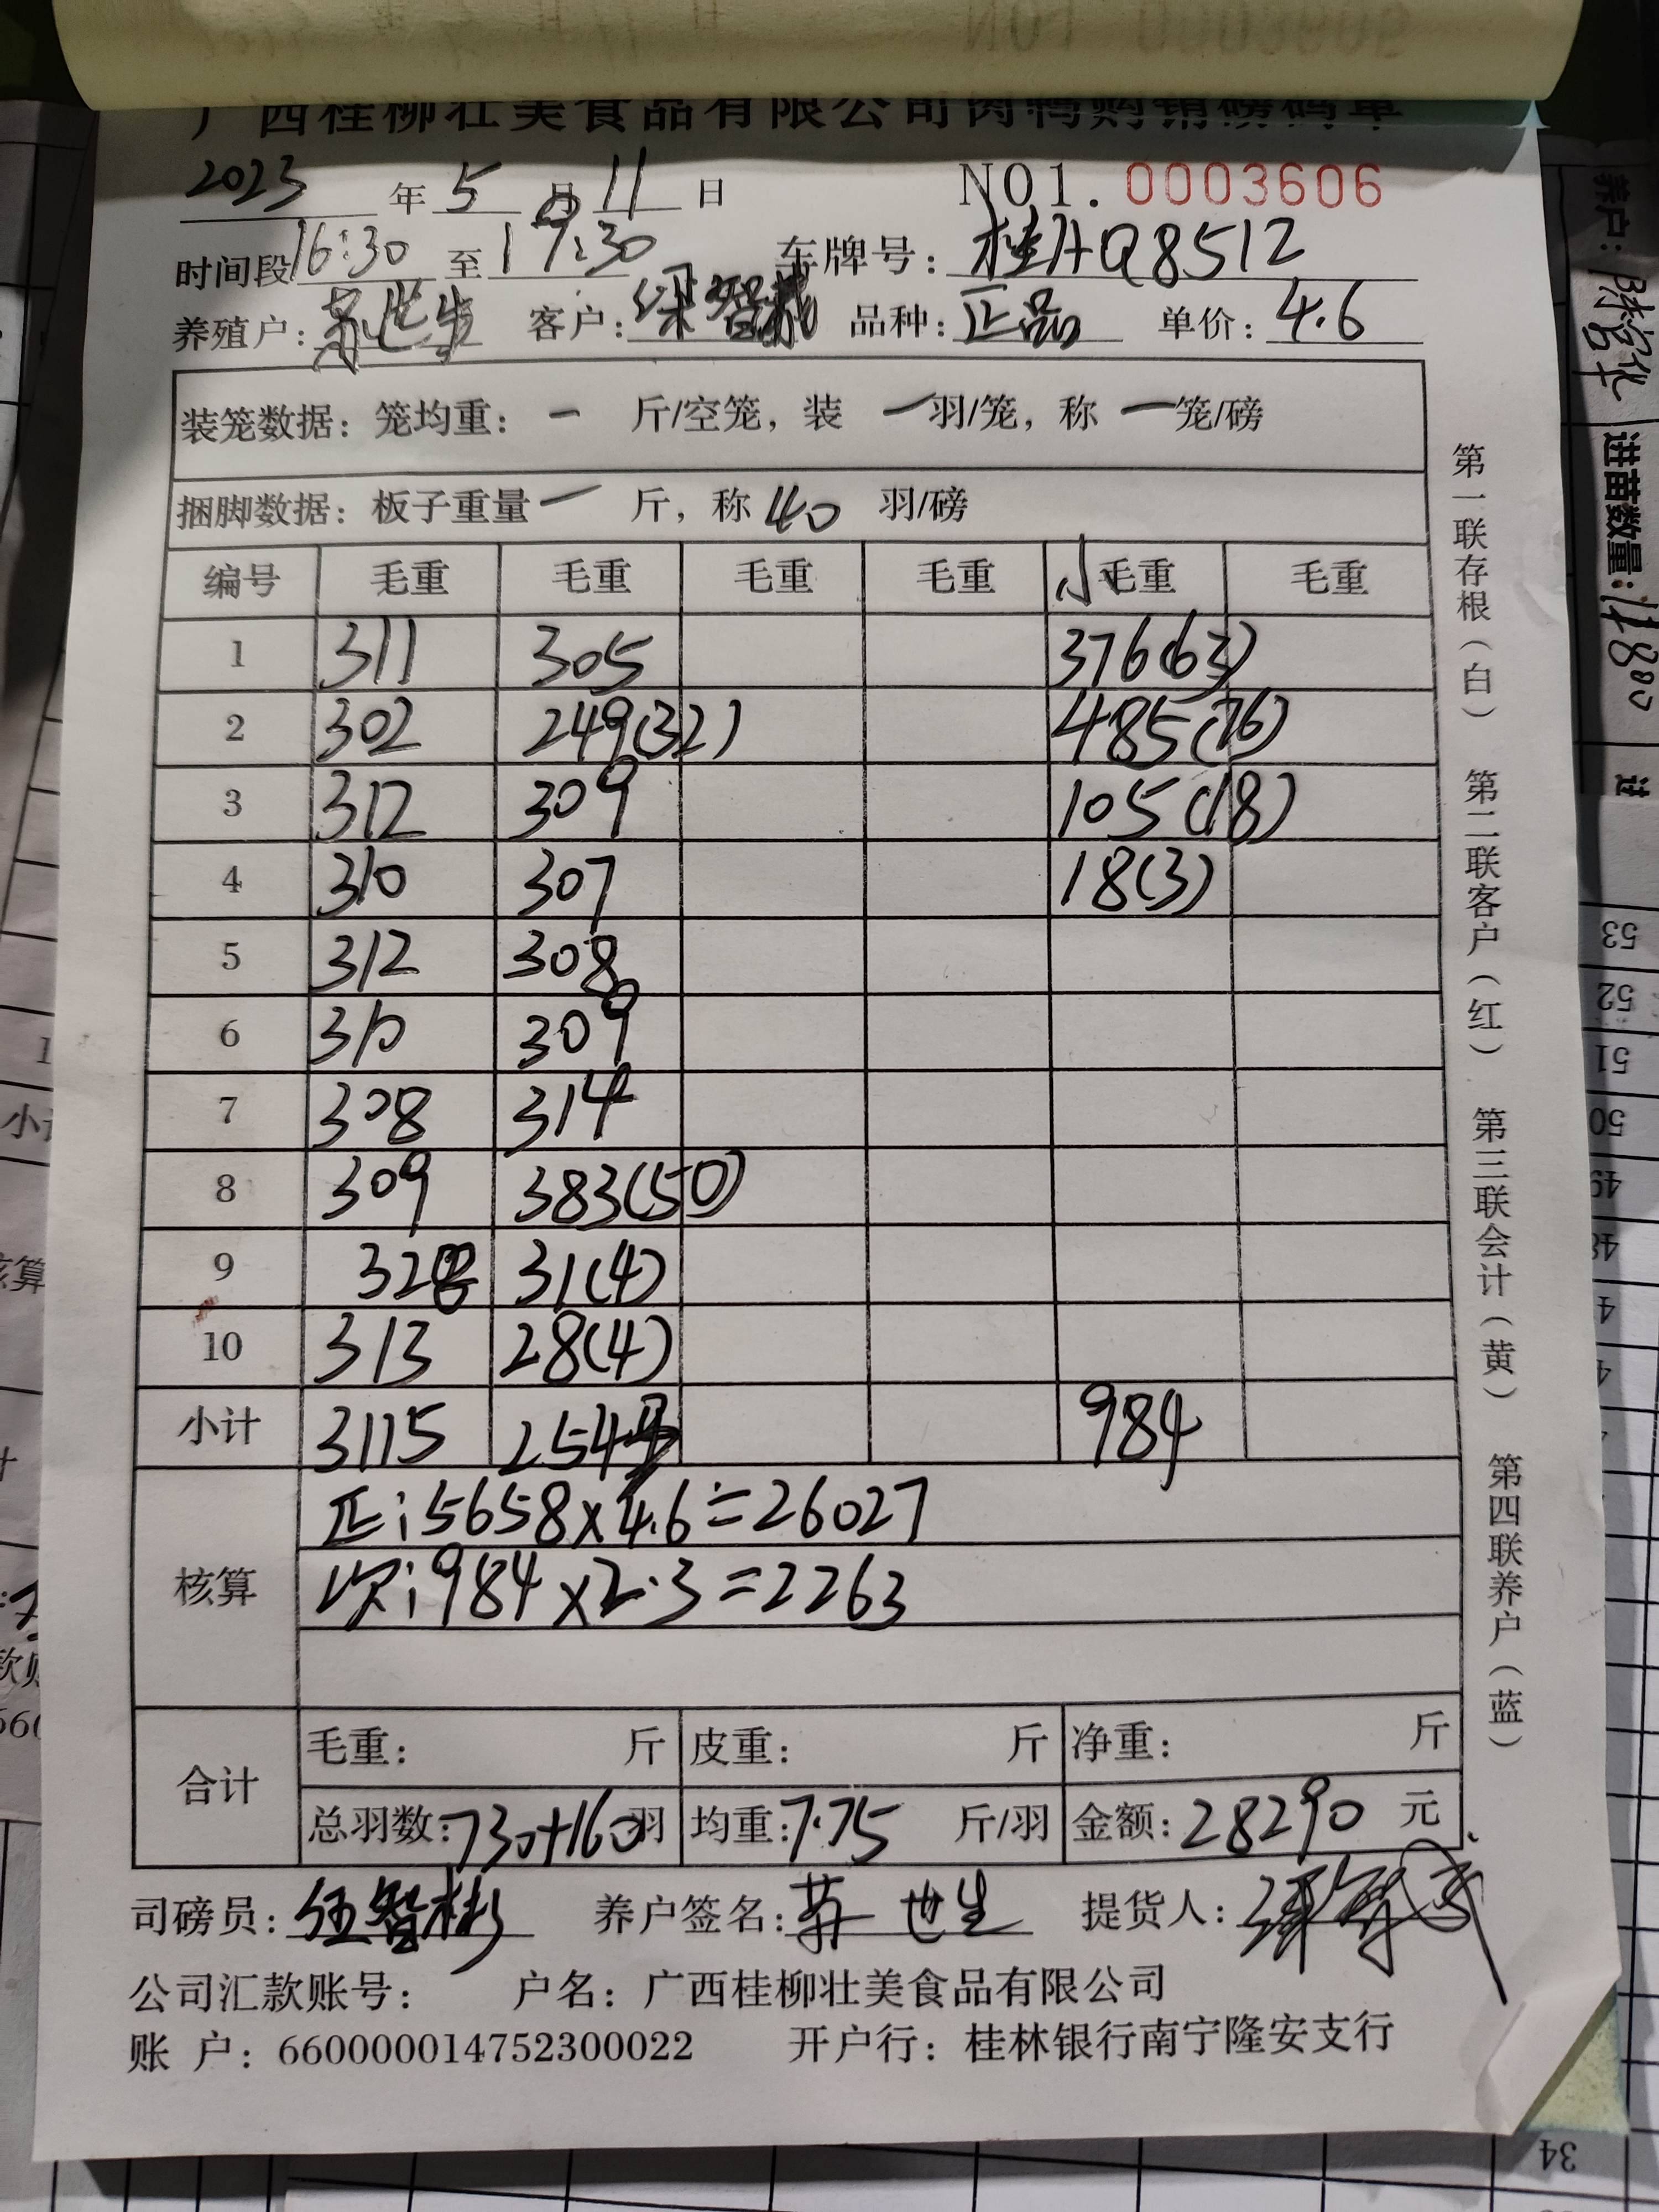 广西桂柳壮美食品有限公司肉鸭购销磅码单
2023 年 5 月 11 日 NO1. 0003606
时间段 16:30 至 19:30 车牌号: 桂AQ8512
养殖户: 苏世生 客户: 智 品种: 正品 单价: 4.6
装笼数据: 笼均重: 一 斤/空笼, 装 一 羽/笼, 称 一 笼/磅
捆脚数据: 板子重量 一 斤, 称 40 羽/磅
编号 毛重 毛重 毛重 毛重 小 毛重 毛重
1 311 305 376(63)
2 302 249(32) 485(76)
3 312 309 105(18)
4 310 307 18(3)
5 312 308
6 310 309
7 308 314
8 309 383(50)
9 328 31(4)
10 313 28(4)
小计 3115 2543 984
核算
正:5658×4.6=26027
次:984×2.3=2263
合计
毛重: 斤 皮重: 斤 净重: 斤
总羽数: 730+160 羽 均重: 7.75 斤/羽 金额: 28290 元
司磅员: 伍智彬 养户签名: 苏世生 提货人:
公司汇款账号: 户名: 广西桂柳壮美食品有限公司
账 户: 660000014752300022 开户行: 桂林银行南宁隆安支行
第一联存根(白) 第二联客户(红) 第三联会计(黄) 第四联养户(蓝)
养户: 陈宫华
进苗数量:
53
52
51
50
49
48
34